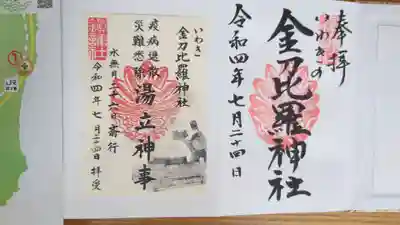 奉拝
いわきの
金刀比羅神社
令和四年七月二十四日
いわき
金刀比羅神社
湯立神事
疫病退散
災難悉除
令和四年七月二十四日拝受
JR